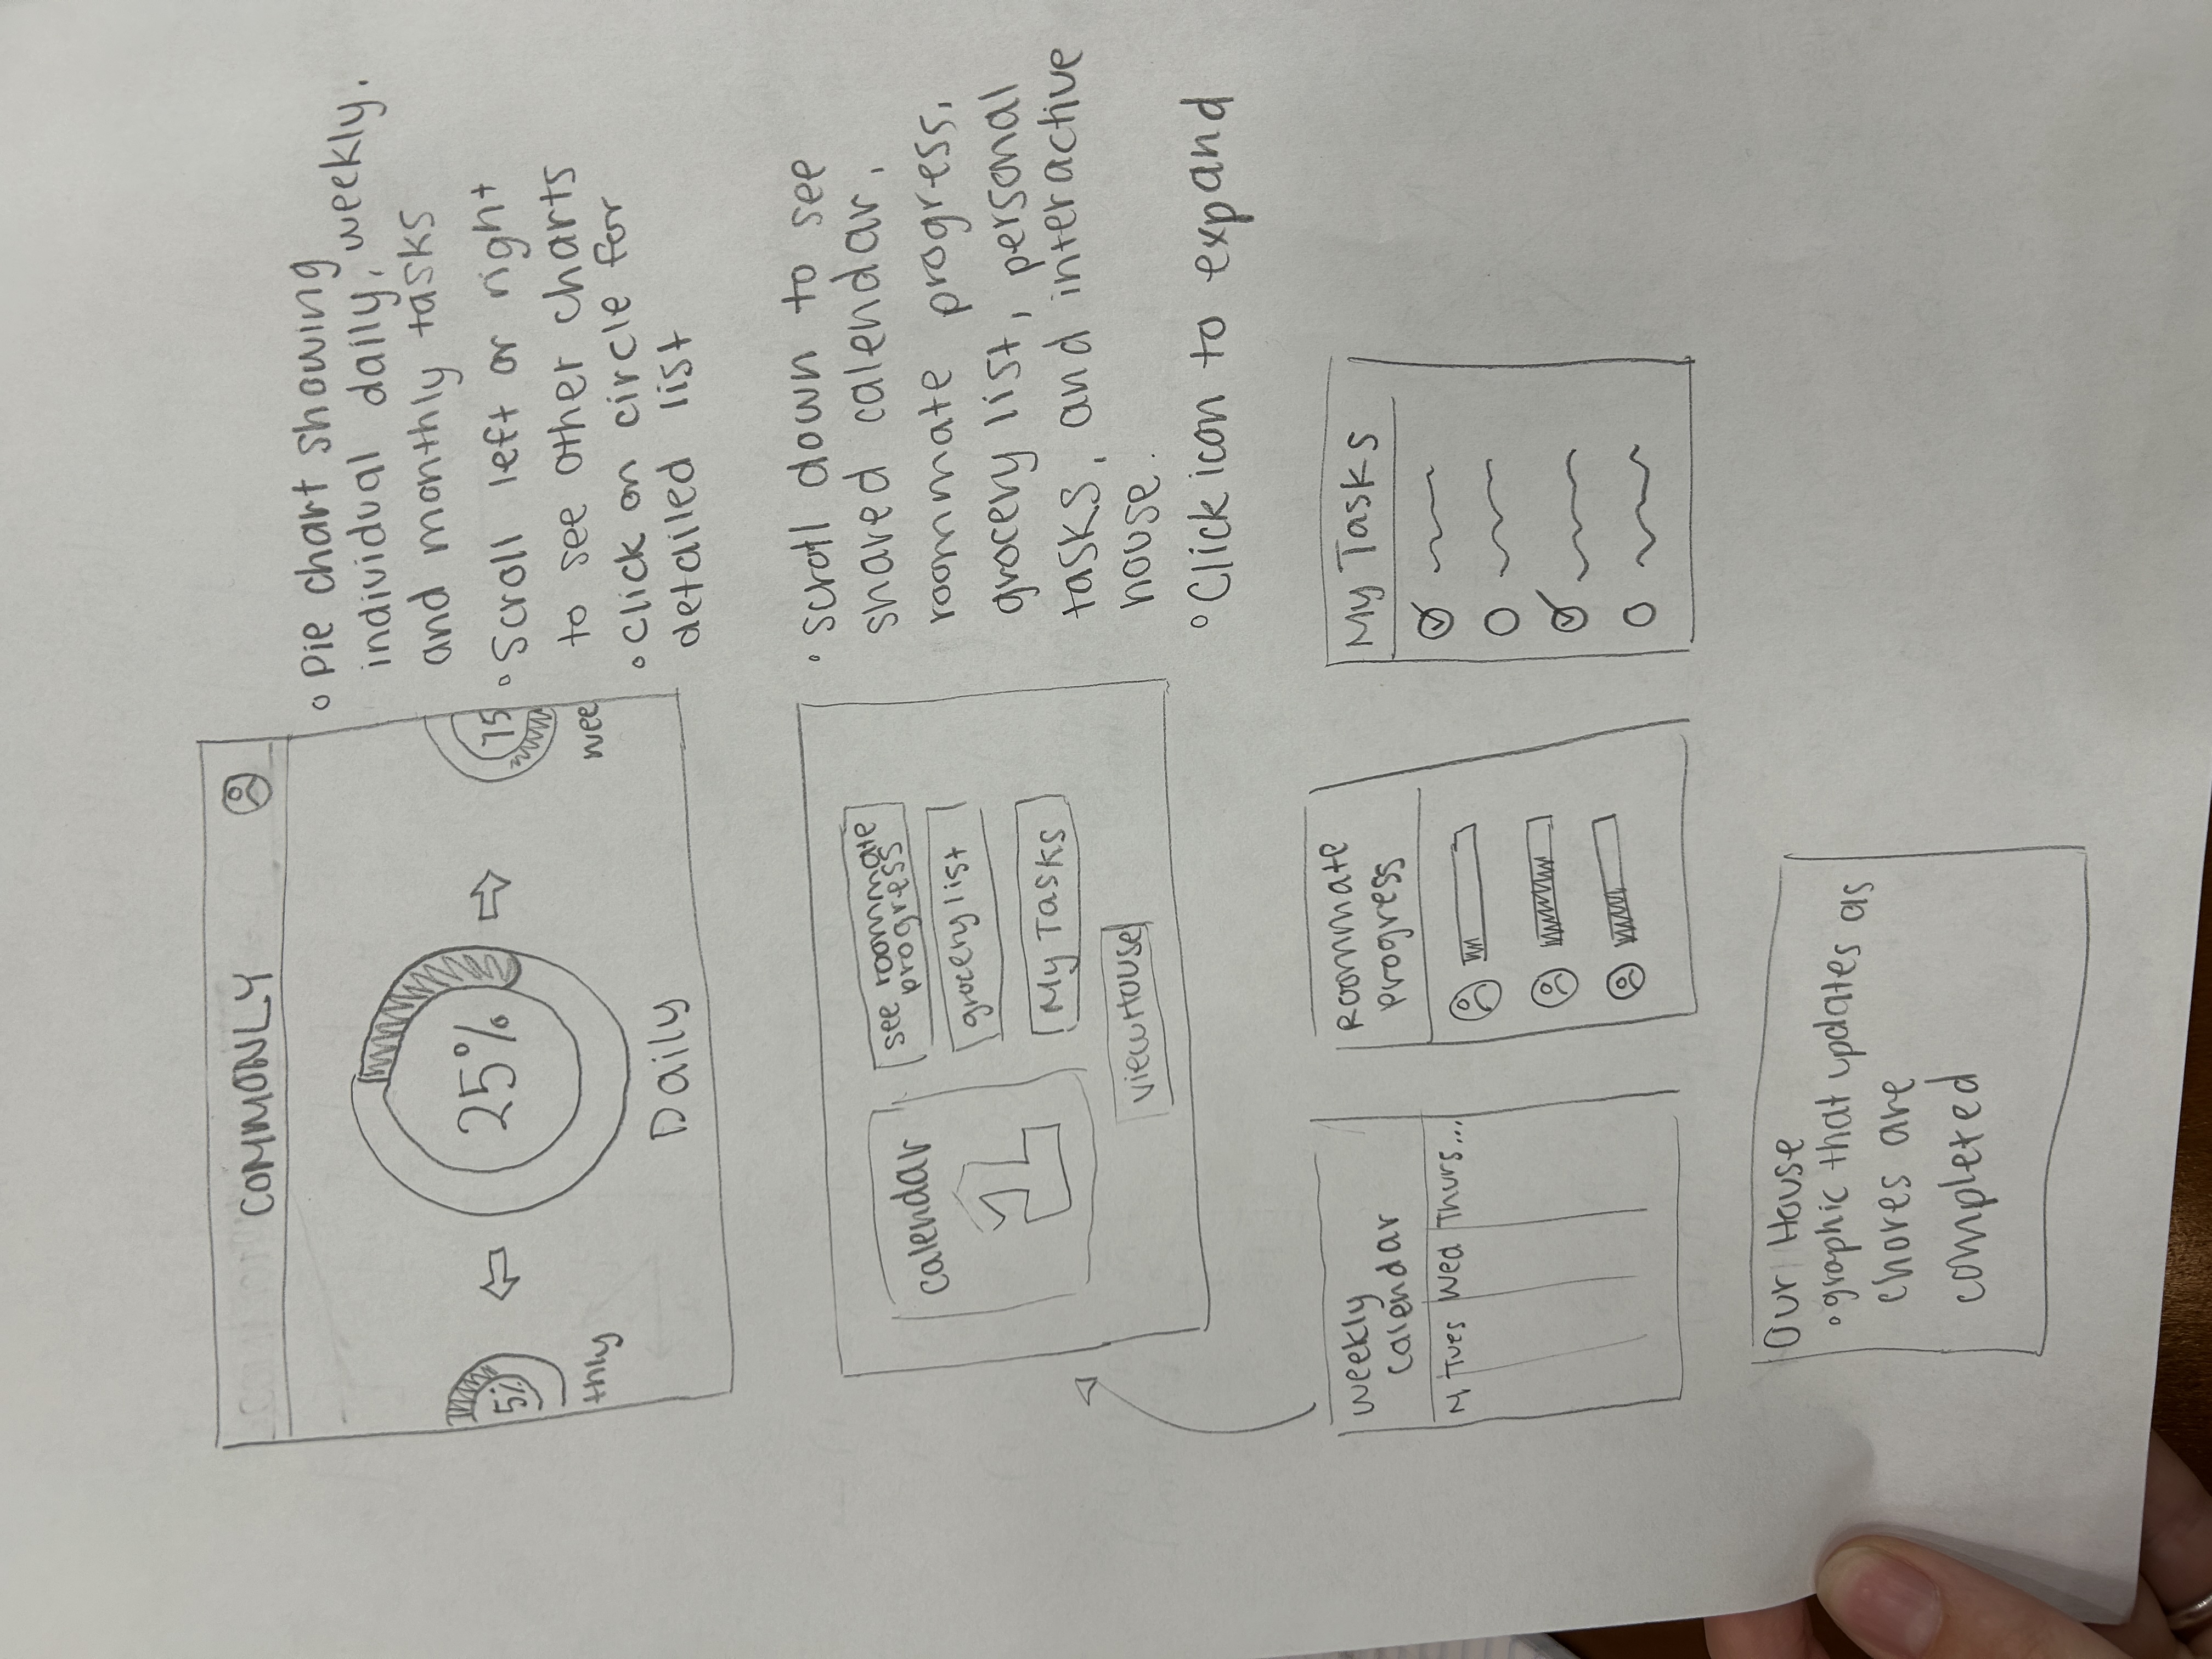 COMMONLY
25%
5%
75
thly
wee
Daily
Pie chart showing
individual daily, weekly,
and monthly tasks
Scroll left or right
to see other charts
Click on circle for
detailed list
calendar
1
see roommate
progress
grocery list
My Tasks
View House
Scroll down to see
shared calendar,
roommate progress,
grocery list, personal
tasks, and interactive
house.
Click icon to expand
Weekly
Calendar
M Tues Wed Thurs...
Roommate
Progress
My Tasks
Our House
graphic that updates as
chores are
completed